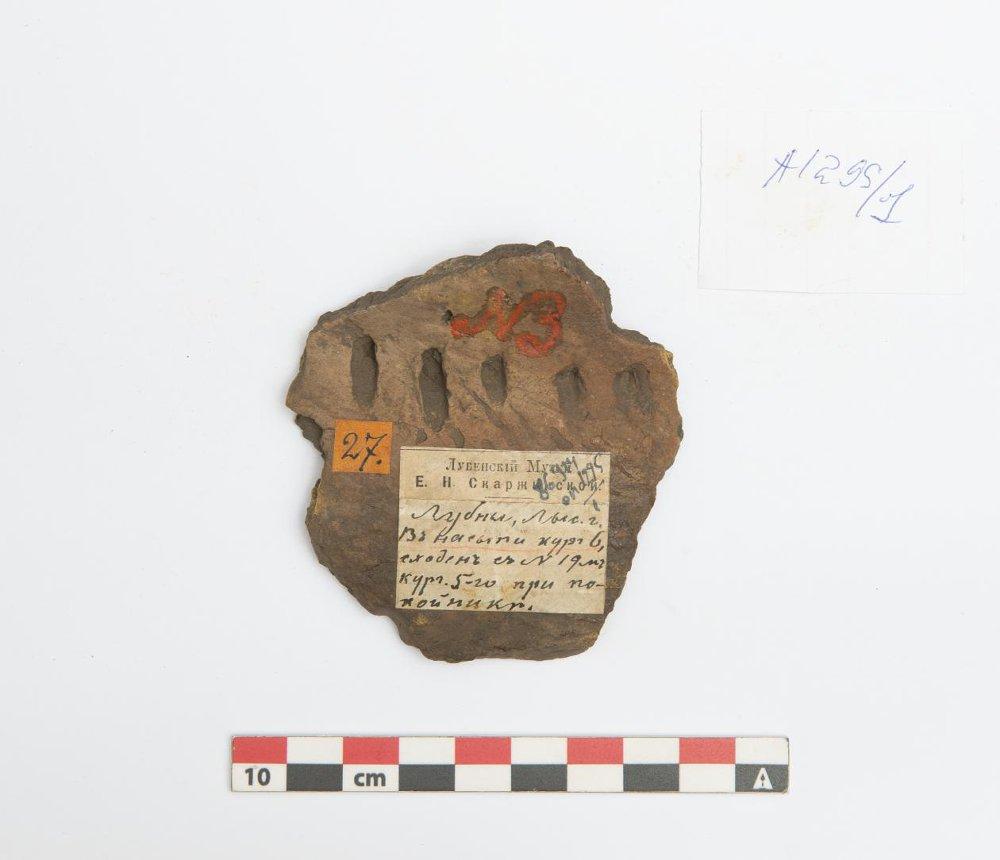 А1295/1
N3
27.
Лубенскій Музей
Е. Н Скаржинской
Лубны, Лыс. г.
Въ насыпи кург 6,
сходенъ съ N 19 изъ
кург. 5-го при по-
койникѣ.
10 cm